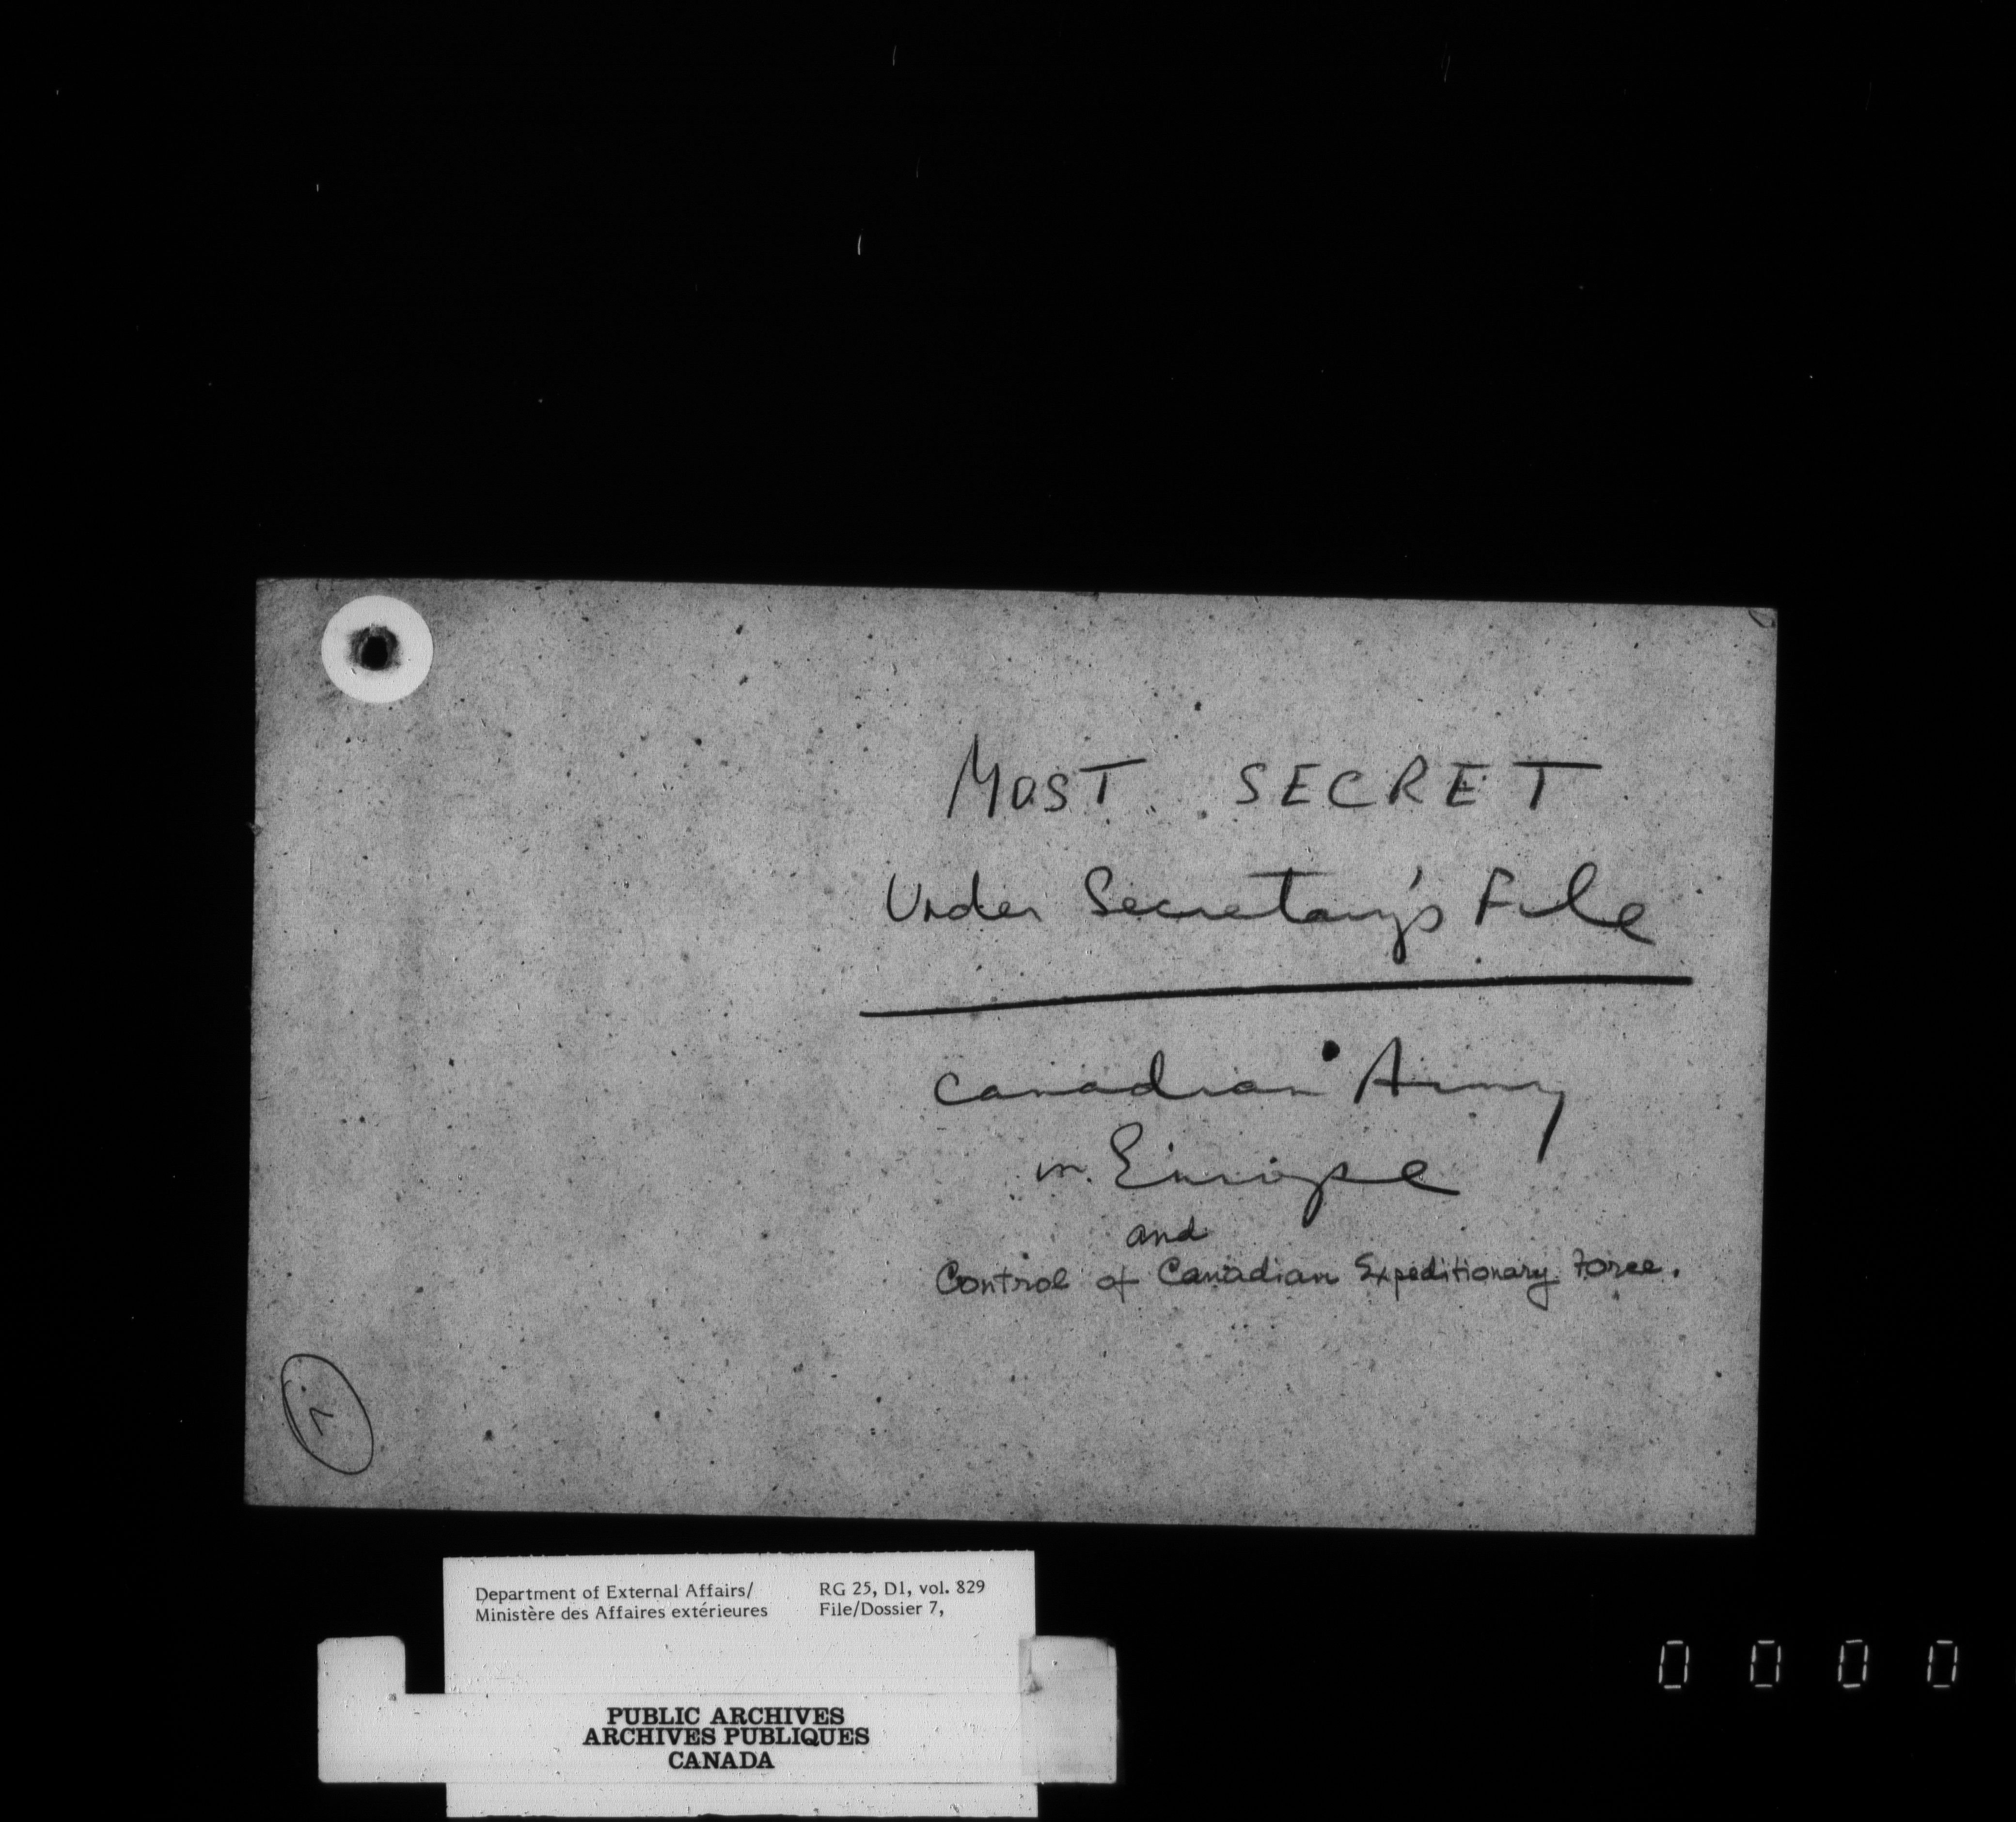 MOST SECRET
Under Secretary's File
Canadian Army
in Europe
and
Control of Canadian Expeditionary Force.
Department of External Affairs/
Ministère des Affaires extérieures
RG 25, D1, vol. 829
File/Dossier 7,
PUBLIC ARCHIVES
ARCHIVES PUBLIQUES
CANADA
0 0 0 0